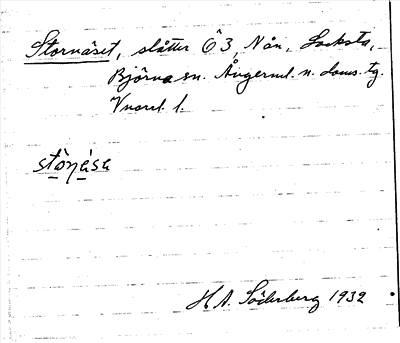 Stornäset, slåtter Ö 3, Nån, Locksta,
Björna sn. Ångerml. n. doms. tg.
Vnorrl. l.
stò̱ɳá̱sɛ
H A. Söderberg 1932